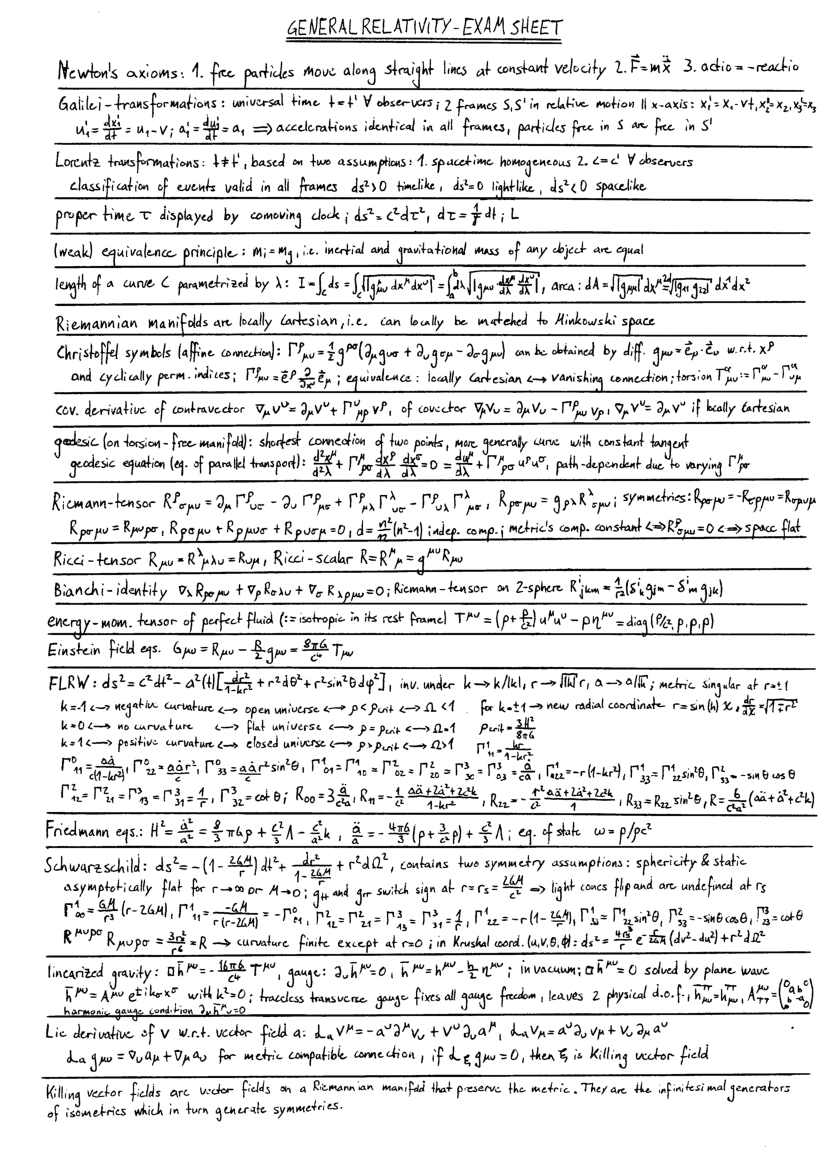 GENERAL RELATIVITY - EXAM SHEET
Newton's axioms: 1. free particles move along straight lines at constant velocity 2. F⃗=mẍ⃗ 3. actio = -reactio
Galilei-transformations: universal time t=t' ∀ observers; 2 frames S,S' in relative motion ∥ x-axis: x₁'=x₁-vt, x₂'=x₂, x₃'=x₃
u₁'=dx₁'/dt=u₁-v; a₁'=du₁'/dt=a₁ ⟹ accelerations identical in all frames, particles free in S are free in S'
Lorentz transformations: t≠t', based on two assumptions: 1. spacetime homogeneous 2. c=c' ∀ observers
classification of events valid in all frames ds²>0 timelike, ds²=0 lightlike, ds²<0 spacelike
proper time τ displayed by comoving clock; ds²=c²dτ², dτ=1/γ dt; L
(weak) equivalence principle: mᵢ=m_g, i.e. inertial and gravitational mass of any object are equal
length of a curve C parametrized by λ: I=∫_C ds=∫_C √|g_μν dx^μ dx^ν|=∫_a^b dλ √|g_μν dx^μ/dλ dx^ν/dλ|, area: dA=√|g_μμ| dx^μ =^{2d} √|g₁₁ g₂₂| dx¹dx²
Riemannian manifolds are locally Cartesian, i.e. can locally be matched to Minkowski space
Christoffel symbols (affine connection): Γ^ρ_μν=½ g^ρσ(∂_μ g_νσ + ∂_ν g_σμ - ∂_σ g_μν) can be obtained by diff. g_μν=e⃗_μ·e⃗_ν w.r.t. x^ρ
and cyclically perm. indices; Γ^ρ_μν=e⃗^ρ ∂/∂x^ν e⃗_μ; equivalence: locally Cartesian ⟷ vanishing connection; torsion T^α_μν:=Γ^α_μν-Γ^α_νμ
cov. derivative of contravector ∇_μ V^ν=∂_μ V^ν+Γ^ν_μρ V^ρ, of covector ∇_μ V_ν=∂_μ V_ν-Γ^ρ_μν V_ρ, ∇_μ V^ν=∂_μ V^ν if locally Cartesian
geodesic (on torsion-free manifold): shortest connection of two points, more generally curve with constant tangent
geodesic equation (eq. of parallel transport): d²x^μ/d²λ+Γ^μ_ρσ dx^ρ/dλ dx^σ/dλ=0=du^μ/dλ+Γ^μ_ρσ u^ρ u^σ, path-dependent due to varying Γ^μ_ρσ
Riemann-tensor R^ρ_σμν=∂_μ Γ^ρ_νσ-∂_ν Γ^ρ_μσ+Γ^ρ_μλ Γ^λ_νσ-Γ^ρ_νλ Γ^λ_μσ, R_ρσμν=g_ρλ R^λ_σμν; symmetries: R_ρσμν=-R_σρμν=R_σρνμ
R_ρσμν=R_μνρσ, R_ρσμν+R_ρμνσ+R_ρνσμ=0, d=n²/12(n²-1) indep. comp.; metric's comp. constant ⟺ R^ρ_σμν=0 ⟺ space flat
Ricci-tensor R_μν=R^λ_μλν=R_νμ, Ricci-scalar R=R^μ_μ=g^μν R_μν
Bianchi-identity ∇_λ R_ρσμν+∇_ρ R_σλμν+∇_σ R_λρμν=0; Riemann-tensor on 2-sphere R^i_jkm=1/r²(δ^i_k g_jm-δ^i_m g_jk)
energy-mom. tensor of perfect fluid (:=isotropic in its rest frame) T^μν=(ρ+p/c²)u^μ u^ν-pη^μν=diag(ρ/c²,p,p,p)
Einstein field eqs. G_μν=R_μν-R/2 g_μν=8πG/c⁴ T_μν
FLRW: ds²=c²dt²-a²(t)[dr²/(1-kr²)+r²dθ²+r²sin²θdφ²], inv. under k→k/|k|, r→√|k| r, a→a/√|k|; metric singular at r=±1
k=-1 ⟷ negative curvature ⟷ open universe ⟷ ρ<ρ_crit ⟷ Ω<1 for k=±1 → new radial coordinate r=sin(h)χ, dr/dχ=√(1∓r²)
k=0 ⟷ no curvature ⟷ flat universe ⟷ ρ=ρ_crit ⟷ Ω=1 ρ_crit=3H²/8πG
k=1 ⟷ positive curvature ⟷ closed universe ⟷ ρ>ρ_crit ⟷ Ω>1 Γ¹₁₁=kr/(1-kr²)
Γ⁰₁₁=aȧ/c(1-kr²), Γ⁰₂₂=aȧr²/c, Γ⁰₃₃=aȧr²sin²θ/c, Γ¹₀₁=Γ¹₁₀=Γ²₀₂=Γ²₂₀=Γ³₃₀=Γ³₀₃=ȧ/ca, Γ¹₂₂=-r(1-kr²), Γ¹₃₃=Γ¹₂₂sin²θ, Γ²₃₃=-sinθcosθ
Γ²₁₂=Γ²₂₁=Γ³₁₃=Γ³₃₁=1/r, Γ³₃₂=cotθ; R₀₀=3ä/c²a, R₁₁=-1/c² (aä+2ȧ²+2c²k)/(1-kr²), R₂₂=-r²/c² (aä+2ȧ²+2c²k)/1, R₃₃=R₂₂sin²θ, R=6/c²a²(aä+ȧ²+c²k)
Friedmann eqs.: H²=ȧ²/a²=8/3 πGρ+c²/3 Λ-c²/a² k, ä/a=-4πG/3(ρ+3/c² p)+c²/3 Λ; eq. of state ω=p/ρc²
Schwarzschild: ds²=-(1-2GM/r)dt²+dr²/(1-2GM/r)+r²dΩ², contains two symmetry assumptions: sphericity & static
asymptotically flat for r→∞ or M→0; g_tt and g_rr switch sign at r=r_s=2GM/c² ⟹ light cones flip and are undefined at r_s
Γ¹₀₀=GM/r³(r-2GM), Γ¹₁₁=-GM/r(r-2GM)=-Γ⁰₀₁, Γ²₁₂=Γ²₂₁=Γ³₁₃=Γ³₃₁=1/r, Γ¹₂₂=-r(1-2GM/r), Γ¹₃₃=Γ¹₂₂sin²θ, Γ²₃₃=-sinθcosθ, Γ³₂₃=cotθ
R^μνρσ R_μνρσ=3r_s²/r⁶=R → curvature finite except at r=0; in Kruskal coord. (u,v,θ,φ): ds²=4r_s³/r e^(-r/2GM)(dv²-du²)+r²dΩ²
linearized gravity: □h̄^μν=-16πG/c⁴ T^μν, gauge: ∂_ν h̄^μν=0, h̄^μν=h^μν-h/2 η^μν; in vacuum: □h̄^μν=0 solved by plane wave
h̄^μν=A^μν e^(±ik_σx^σ) with k²=0; traceless transverse gauge fixes all gauge freedom, leaves 2 physical d.o.f., h̄^TT_μν=h^TT_μν, A^μν_TT=(0 a b c b -a 0)
harmonic gauge condition ∂_ν h̄^μν=0
Lie derivative of V w.r.t. vector field a: L_a V^μ=-a^ν∂^μ V_ν+V^ν∂_ν a^μ, L_a V_μ=a^ν∂_ν v_μ+V_ν∂_μ a^ν
L_a g_μν=∇_ν a_μ+∇_μ a_ν for metric compatible connection, if L_ξ g_μν=0, then ξ is Killing vector field
Killing vector fields are vector fields on a Riemannian manifold that preserve the metric. They are the infinitesimal generators
of isometries which in turn generate symmetries.